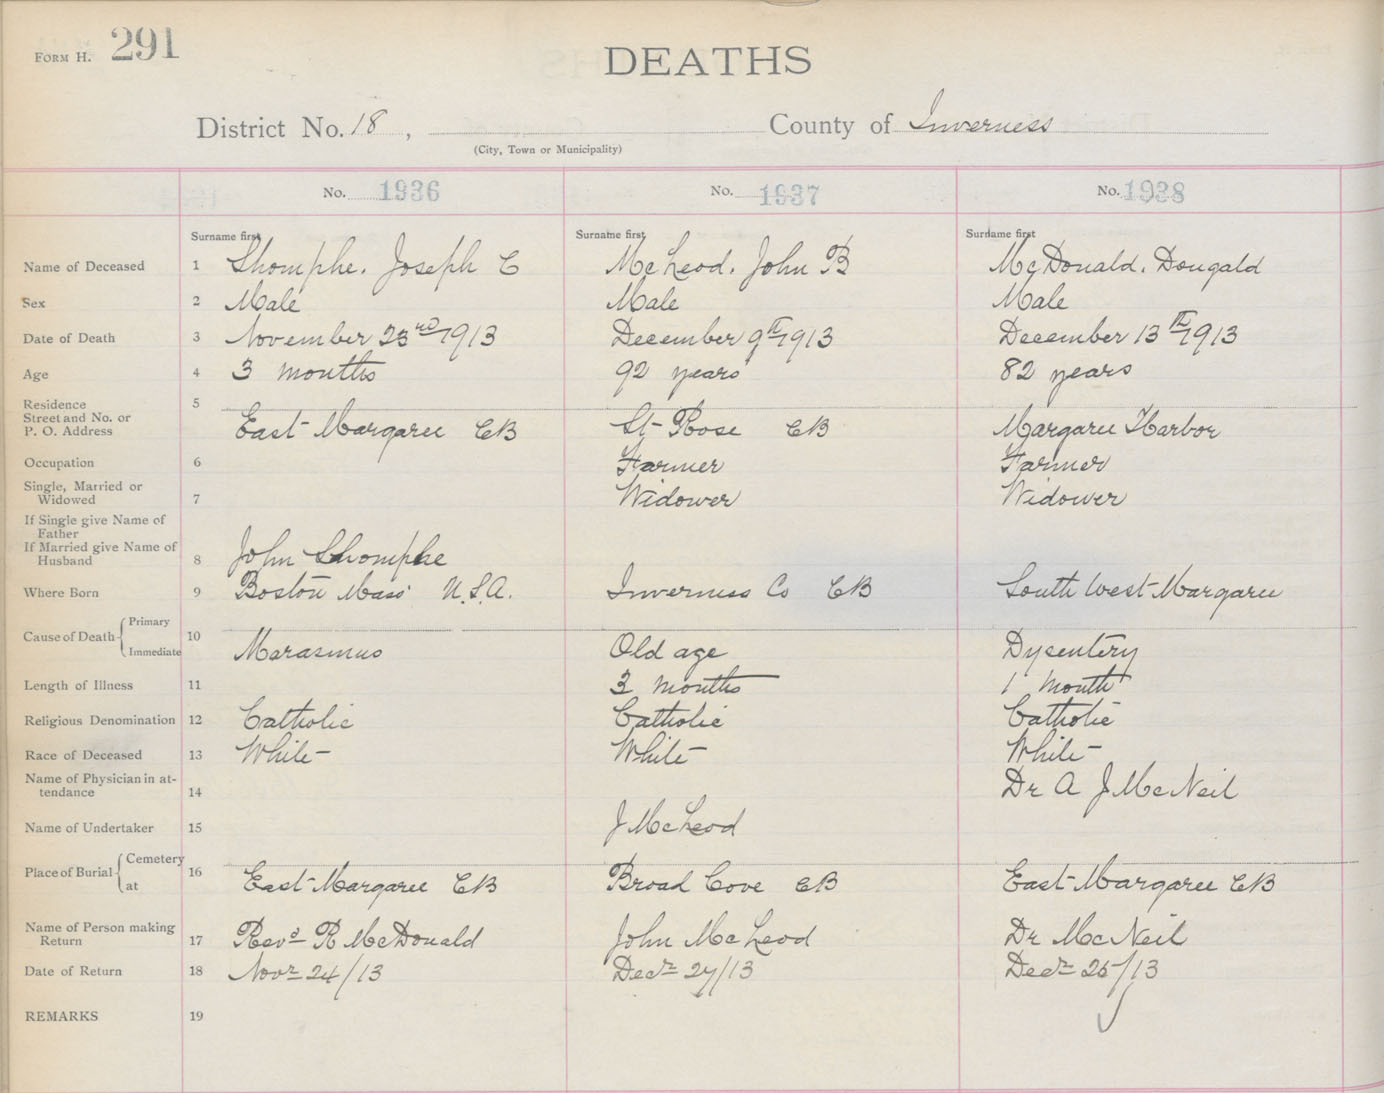 FORM H. 291
DEATHS
District No. 18 , County of Inverness
(City, Town or Municipality)
No. 1936 No. 1937 No. 1938
Surname first Surname first Surname first
Name of Deceased 1 Shomphe. Joseph C McLeod. John B McDonald. Dougald
Sex 2 Male Male Male
Date of Death 3 November 23rd 1913 December 9th 1913 December 13th 1913
Age 4 3 months 92 years 82 years
Residence 5
Street and No. or
P. O. Address East Margaree CB St Rose CB Margaree Harbor
Occupation 6 Farmer Farmer
Single, Married or
Widowed 7 Widower Widower
If Single give Name of
Father
If Married give Name of
Husband 8 John Shomphe
Where Born 9 Boston Mass U.S.A. Inverness Co CB South West Margaree
Primary
Cause of Death 10
Immediate Marasmus Old age Dysentery
Length of Illness 11 3 months 1 month
Religious Denomination 12 Catholic Catholic Catholic
Race of Deceased 13 White White White
Name of Physician in at-
tendance 14 Dr A J McNeil
Name of Undertaker 15 J McLeod
Cemetery
Place of Burial 16
at East Margaree CB Broad Cove CB East Margaree CB
Name of Person making
Return 17 Revd R McDonald John McLeod Dr McNeil
Date of Return 18 Novr 24/13 Decr 27/13 Decr 25/13
REMARKS 19